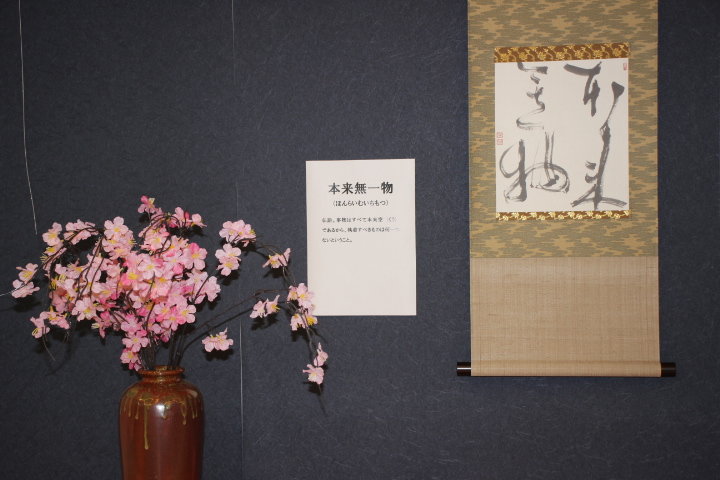 本来無一物
(ほんらいむいちもつ)
仏語。事物はすべて本来空(くう)
であるから、執着すべきものは何一つ
ないということ。
本来
無一物